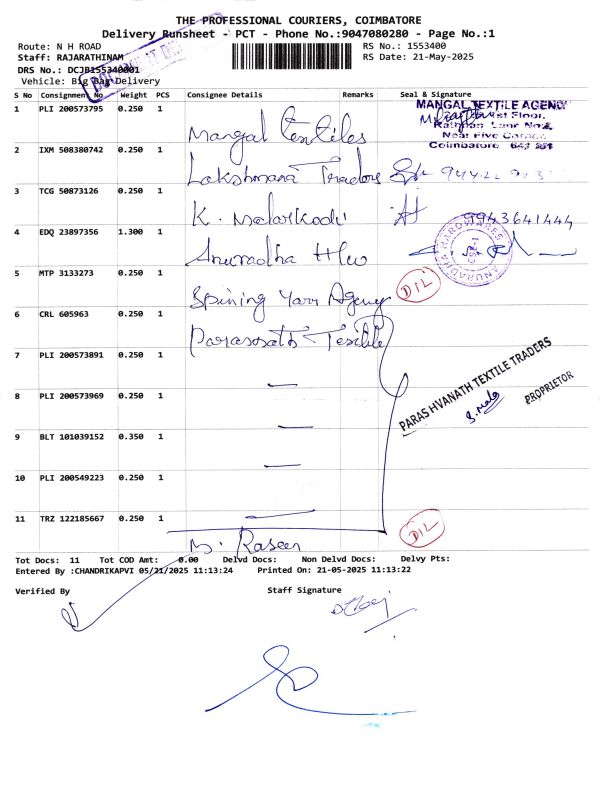 THE PROFESSIONAL COURIERS, COIMBATORE
Delivery Runsheet - PCT - Phone No.:9047080280 - Page No.:1
Route: N H ROAD
RS No.: 1553400
Staff: RAJARATHINAM
RS Date: 21-May-2025
DRS No.: DCJB155340001
Vehicle: Big Bag Delivery
S No Consignment No Weight PCS Consignee Details Remarks Seal & Signature
1 PLI 200573795 0.250 1 Mangal textiles
MANGAL TEXTILE AGENCY
1st Floor,
Near Five Corner
Coimbatore
2 IXM 508380742 0.250 1 Lakshmana Traders
3 TCG 50873126 0.250 1 K. Malarkodi 9943641444
4 EDQ 23897356 1.300 1 Anuradha H/w
ANURADHA HARDWARES
CBE-1
5 MTP 3133273 0.250 1 Spining Yarn Agency DIL
6 CRL 605963 0.250 1 Textile
7 PLI 200573891 0.250 1 —
PARAS HVANATH TEXTILE TRADERS
PROPRIETOR
8 PLI 200573969 0.250 1 —
9 BLT 101039152 0.350 1 —
10 PLI 200549223 0.250 1
11 TRZ 122185667 0.250 1 —
DIL
Tot Docs: 11 Tot COD Amt: 0.00 Delvd Docs: Non Delvd Docs: Delvy Pts:
Entered By :CHANDRIKAPVI 05/21/2025 11:13:24 Printed On: 21-05-2025 11:13:22
Verified By Staff Signature